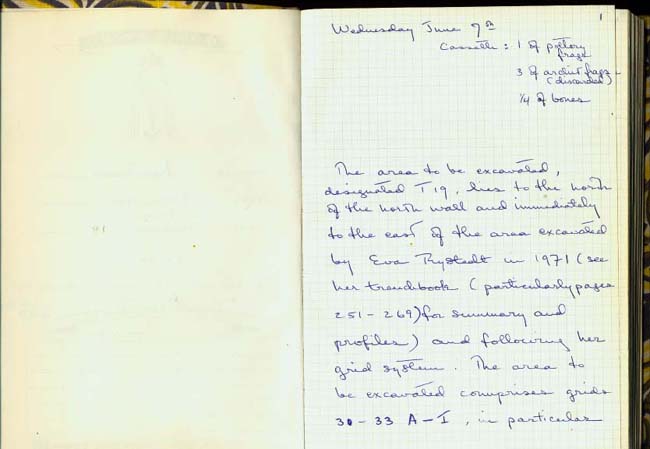 1
Wednesday June 9th
Cassette: 1 of pottery
frags
3 of architect frags
(discarded)
1/4 of bones
The area to be excavated,
designated T19, lies to the north
of the north wall and immediately
to the east of the area excavated
by Eva Rystedt in 1971 (see
her trenchbook (particularly pages
251-269) for summary and
profiles) and following her
grid system. The area to
be excavated comprises grids
30-33 A-I, in particular